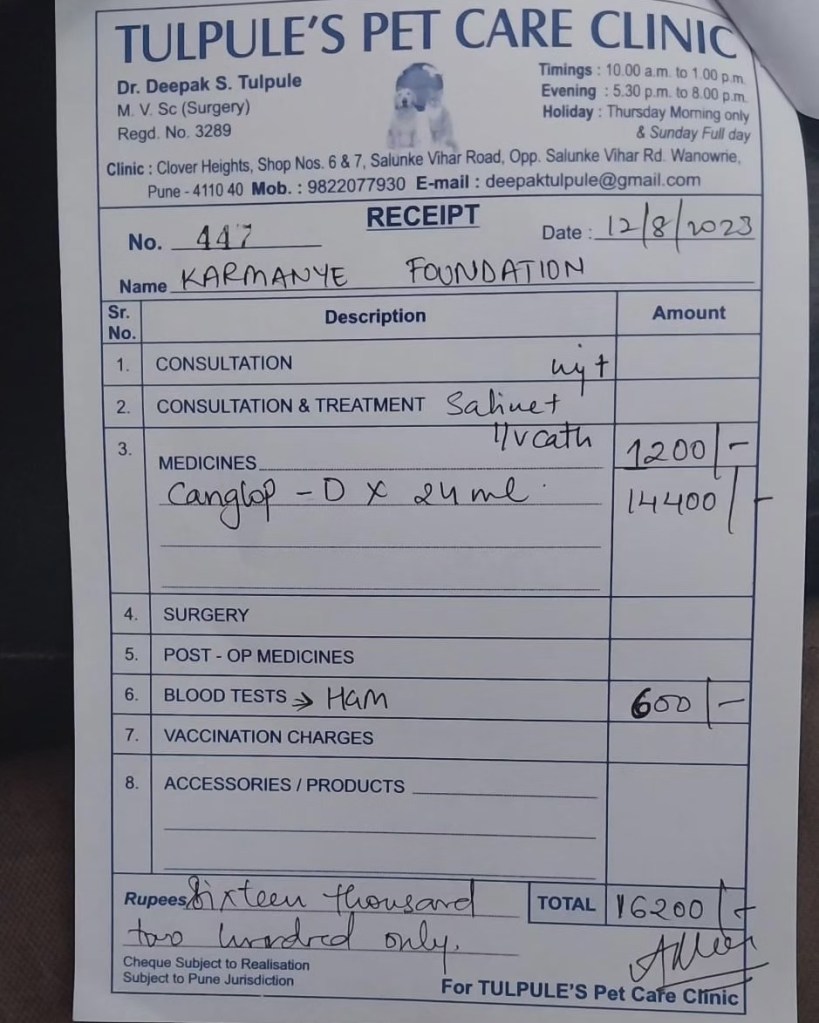 TULPULE'S PET CARE CLINIC
Dr. Deepak S. Tulpule
M. V. Sc (Surgery)
Regd. No. 3289
Timings : 10.00 a.m. to 1.00 p.m.
Evening : 5.30 p.m. to 8.00 p.m.
Holiday : Thursday Morning only
& Sunday Full day
Clinic : Clover Heights, Shop Nos. 6 & 7, Salunke Vihar Road, Opp. Salunke Vihar Rd. Wanowrie,
Pune - 4110 40 Mob. : 9822077930 E-mail : deepaktulpule@gmail.com
RECEIPT
No. 447 Date : 12/8/2023
Name KARMANYE FOUNDATION
Sr. No. Description Amount
1. CONSULTATION
2. CONSULTATION & TREATMENT
I/V cath 1200/-
3. MEDICINES
Canglop - D X 24 ml. 14400/-
4. SURGERY
5. POST - OP MEDICINES
6. BLOOD TESTS → 600/-
7. VACCINATION CHARGES
8. ACCESSORIES / PRODUCTS
Rupees Sixteen thousand TOTAL 16200/-
two hundred only.
Cheque Subject to Realisation
Subject to Pune Jurisdiction
For TULPULE'S Pet Care Clinic